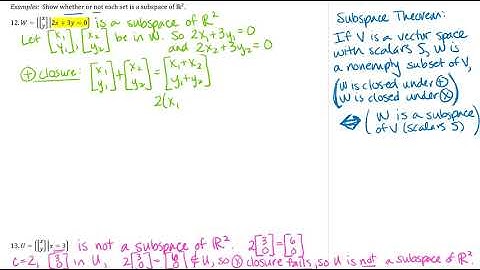 Examples: Show whether or not each set is a subspace of ℝ².
12. W = {[x y] | 2x + 3y = 0} is a subspace of ℝ²
Let [x₁ y₁], [x₂ y₂] be in W. So 2x₁+3y₁=0
and 2x₂+3y₂=0
⊕ closure: [x₁ y₁] + [x₂ y₂] = [x₁+x₂ y₁+y₂]
2(x₁
Subspace Theorem:
If V is a vector space
with scalars S, W is
a nonempty subset of V,
(W is closed under ⊕
W is closed under ⊗)
⟺ (W is a subspace
of V (scalars S))
13. U = {[x y] | x = 3} is not a subspace of ℝ². 2[3 0]=[6 0]
c=2, [3 0] in U, 2[3 0]=[6 0]∉U, so ⊕ closure fails, so U is not a subspace of ℝ².